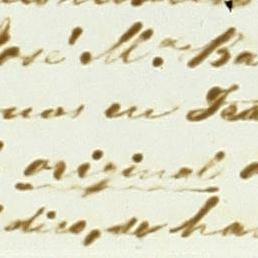 José M.ª Ba
nos en Tea
original
dico, se ha